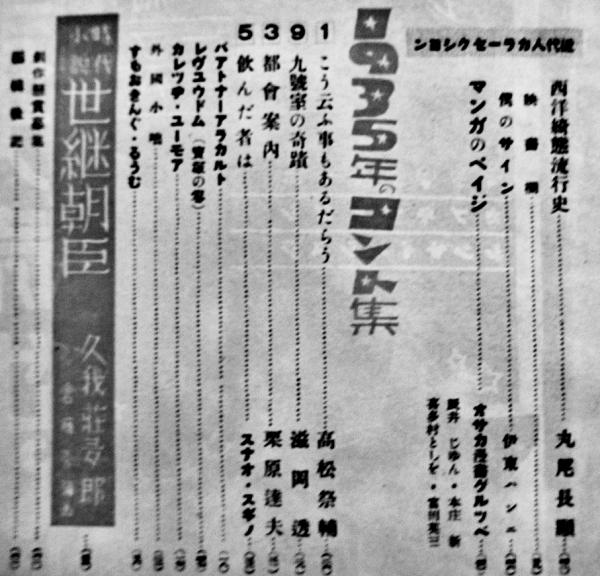 近代人カラーセクシヨン
西洋綺態流行史 丸尾長顕
映畫欄
僕のサイン 伊東
マンガのペイジ オサカ漫畫グルツペ
酒井じゆん・本庄新
喜多村としを・富田英三
1935年のコント集
1 こう云ふ事もあるだらう 高松祭輔
9 九號室の奇蹟 滋岡透
3 都會案内 栗原達夫
5 飲んだ者は スナオ・スギノ
バアトナーアラカルト
レヴユウドム
カレツヂ・ユーモア
外國小噺
すもおきんぐ・るうむ
時代小説 世継朝臣 久我荘多郎
創作懸賞募集
編輯後記